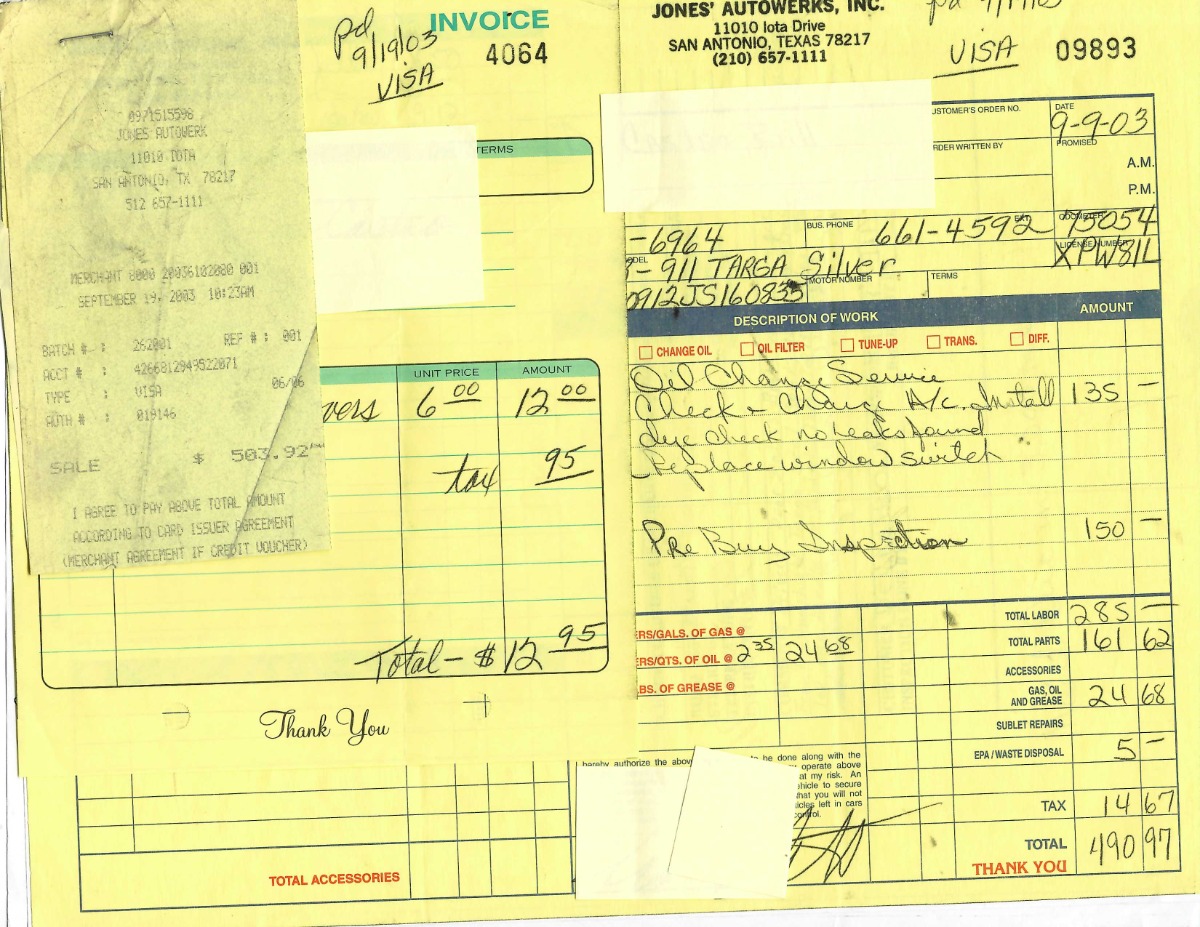 0971515598
JONES AUTOWERK
11010 IOTA
SAN ANTONIO, TX 78217
512 657-1111
MERCHANT 8000 20036102080 001
SEPTEMBER 19, 2003 10:23AM
BATCH # : 262001 REF # : 001
ACCT # : 4266812949522071
TYPE : VISA 06/06
AUTH # : 019146
SALE $ 503.92
I AGREE TO PAY ABOVE TOTAL AMOUNT
ACCORDING TO CARD ISSUER AGREEMENT
(MERCHANT AGREEMENT IF CREDIT VOUCHER)
pd
9/19/03
VISA
INVOICE
4064
TERMS
UNIT PRICE AMOUNT
vers 6 00 12 00
tax 95
Total - $ 12 95
Thank You
TOTAL ACCESSORIES
JONES' AUTOWERKS, INC.
11010 Iota Drive
SAN ANTONIO, TEXAS 78217
(210) 657-1111
pd 9/19/03
VISA
09893
USTOMER'S ORDER NO. DATE
9-9-03
RDER WRITTEN BY PROMISED
A.M.
P.M.
-6964 BUS. PHONE 661-4592 EXT. ODOMETER 75054
ODEL - 911 TARGA Silver LICENSE NUMBER XPW81L
0912JS160835 MOTOR NUMBER TERMS
DESCRIPTION OF WORK AMOUNT
CHANGE OIL OIL FILTER TUNE-UP TRANS. DIFF.
Oil Change Service
Check & Charge A/c. Install 135 —
dye check no leaks found
Replace window switch
Pre Buy Inspection 150 —
TOTAL LABOR 285 —
ERS/GALS. OF GAS @ TOTAL PARTS 161 62
ERS/QTS. OF OIL @ 2 35 24 68 ACCESSORIES
LBS. OF GREASE @ GAS, OIL AND GREASE 24 68
SUBLET REPAIRS
EPA / WASTE DISPOSAL 5 —
hereby authorize the above to be done along with the
operate above
at my risk. An
ehicle to secure
hat you will not
icles left in cars
control.
TAX 14 67
TOTAL 490 97
THANK YOU